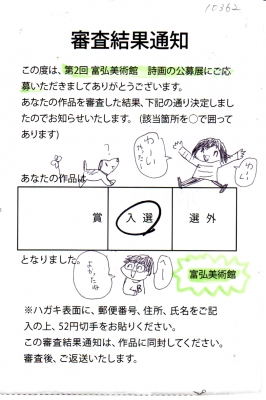 10362
審査結果通知
この度は、第2回 富弘美術館　詩画の公募展にご応
募いただきましてありがとうございます。
あなたの作品を審査した結果、下記の通り決定しまし
たのでお知らせいたします。（該当箇所を○で囲って
あります）
あなたの作品は
賞　入選　選外
となりました。
よかったね
へー
富弘美術館
※ハガキ表面に、郵便番号、住所、氏名をご記
入の上、52円切手をお貼りください。
この審査結果通知は、作品に同封してください。
審査後、ご返送いたします。